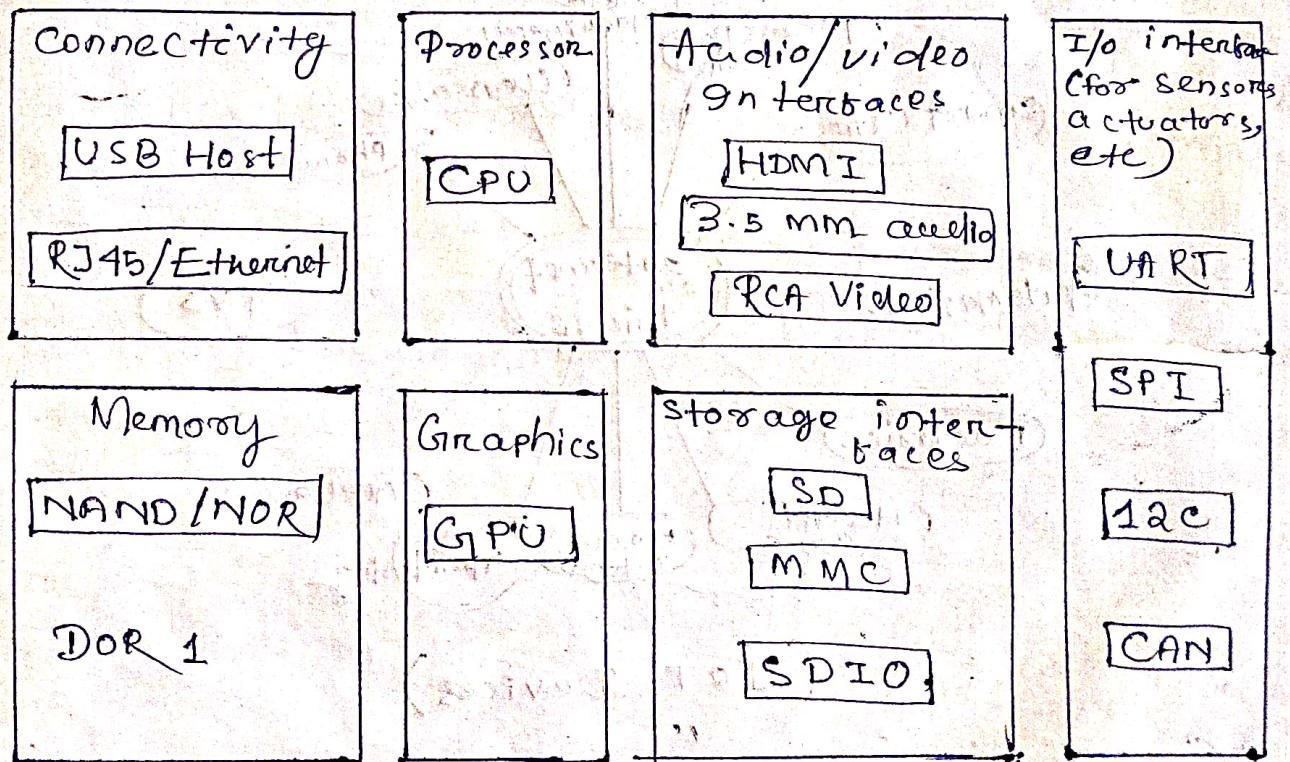 Connectivity
USB Host
RJ45/Ethernet
Processor
CPU
Audio/video
Interfaces
HDMI
3.5 mm audio
RCA Video
I/o interface
(for sensors
actuators,
etc)
UART
SPI
12C
CAN
Memory
NAND/NOR
DOR 1
Graphics
GPU
Storage inter-
faces
SD
MMC
SDIO